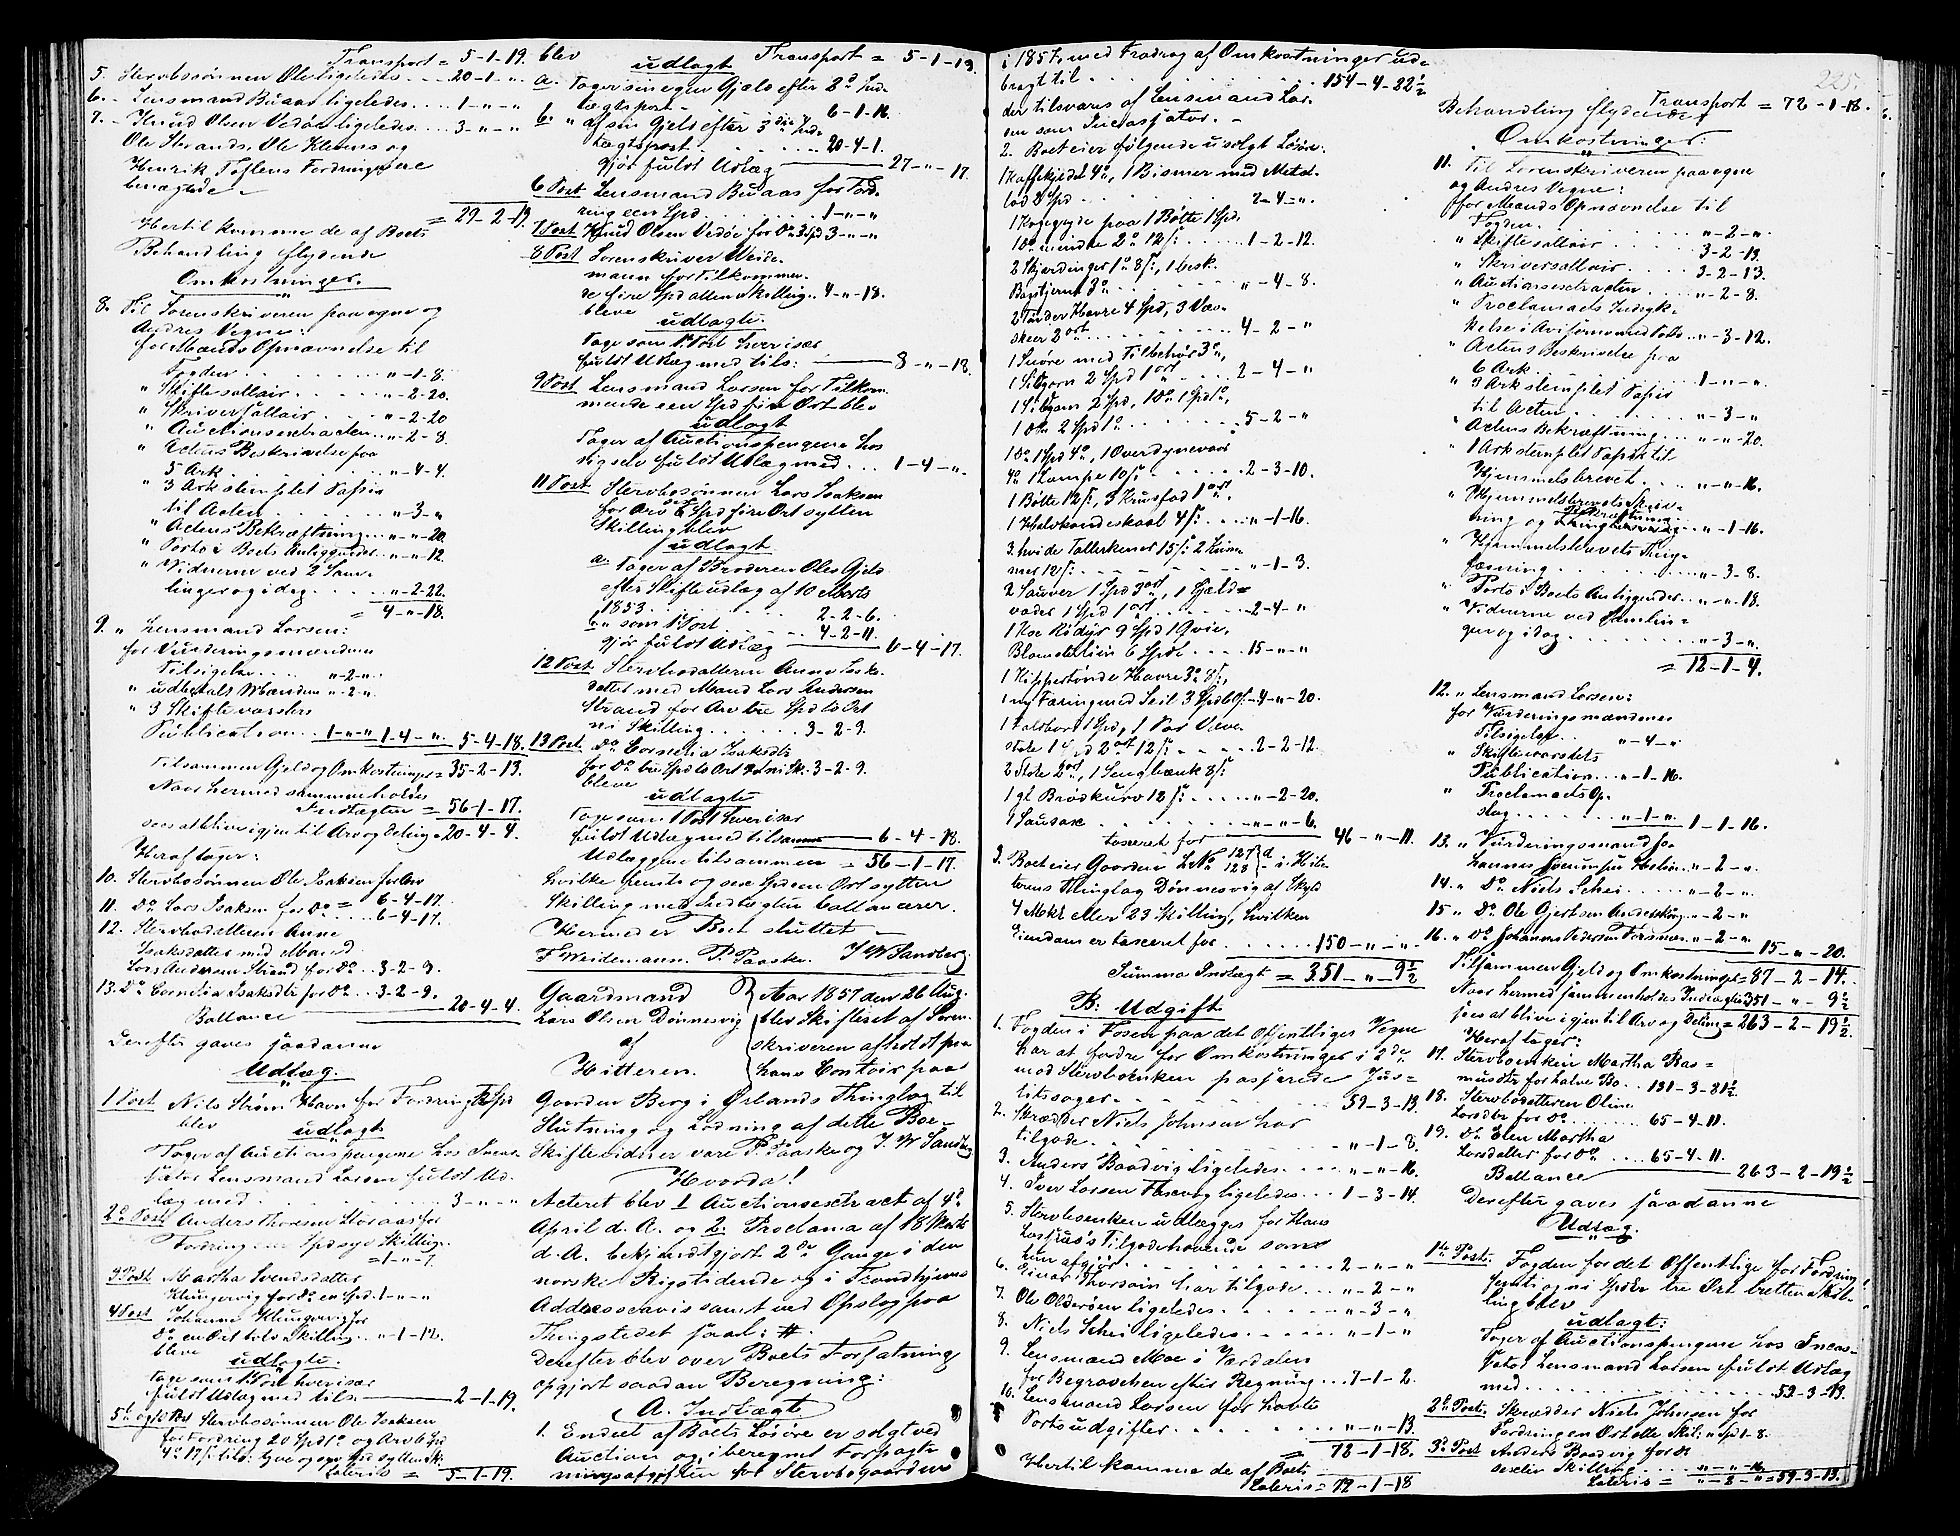 Transport = 5-1-19.
5. Stervbosønnen Ole ligeledes... 20-1-"
6. - Lensmand Buaas ligeledes... 1-"-"
7. - Knud Olsen Vedøe ligeledes... 3-"-"
Ole Strands, Ole Klems og
Henrik Foslens Fordringer
benægtede.
= 29-2-19.
Hertil komme de af Boets
Behandling flydende
Omkostninger.
8. Til Sorenskriveren paa egne og
Andres Vegne:
for Mands Opnævnelse til
Fogden "-1-8.
" Skiftesallair "-2-20.
" Skriversallair "-2-20
" Auctionsextracten "-2-8.
" Actens Beskrivelse paa
5 Ark "-4-4.
" 3 Ark stemplet Papir
til Acten "-3-"
" Actens Bekræftning "-"-20.
" Porto i Boets Anliggender "-"-12.
" Vidnerne ved 2 Sam-
linger og idag "-2-22.
= 4-"-18.
9. " Lensmand Larsen:
for Vurderingsmændenes
Tilsigelse "-2-"
" udbetalt Mændene "-2-"
" 3 Skiftevarslers
Publication 1-"-" 1-4-". 5-4-18.
Tilsammen Gjeld og Omkostninger = 35-2-13.
Naar hermed sammenholdes
Indtægten = 56-1-17.
sees at blive igjen til Arv og Deling = 20-4-4.
Heraf tager:
10. Stervbosønnen Ole Isaksen for Arv
= 6-4-17.
11. Do Lars Isaksen for Do 6-4-17.
12. Stervbodatteren Anne
Isaksdatter med Mand
Lars Andersen Strand for Do 3-2-9.
13. Do Cornelia Isaksdtr for Do 3-2-9. 20-4-4.
Ballance
Derefter gaves saadanne
Udlæg.
1 Post Nils Strøm Havn for Fordring 3 Spd
blev udlagt
Tager af Auctionspengene hos Incas-
sator Lensmand Larsen fuldt Ud-
læg med 3-"-"
2n Post Anders Thoresen Storaas for
Fordring een Spd syv Skilling
= 1-"-7.
3 Post Martha Svendsdatter
Klungervig for Do en Spd. 1-"-"
4 Post Johannes Klungervig for
Do en Ort tolv Skilling "-1-12.
bleve
udlagte.
tage som 1 Post hver især
fuldt Udlæg med tils. 2-1-19.
5t og 10 Post Stervbosønnen Ole Isaksen
for Fordring 20 Spd 1o og Arv 6 Spd
4o 17 s. tils. syv og tyve Spd sytten Sk.
Lateris = 5-1-19.

blev udlagt Transport = 5-1-19.
a. Tager sin egen Gjeld efter 2o Ind-
tægtspost 6-1-16.
b. " af sin Gjeld efter 3die Ind-
tægtspost 20-4-1.
gjør fuldt Udlæg 27-"-17.
6 Post Lensmand Buaas for Ford-
ring een Spd 1-"-"
7 Post Knud Olsen Vedøe for Do 3 Spd 3-"-"
8 Post Sorenskriver Weide-
mann for Tilkommen-
de fire Spd atten Skilling 4-"-18.
bleve
udlagte.
Tage som 1 Post hver især
fuldt Udlæg med tils. 8-"-18.
9 Post Lensmand Larsen for Tilkom-
mende een Spd fire Ort blev
udlagt
Tager af Auctionspengene hos
sig selv fuldt Udlæg med 1-4-".
11 Post Stervbosønnen Lars Isaksen
for Arv 6 Spd fire Ort sytten
Skilling blev
udlagt
a. Tager af Broderen Oles Gjeld
efter Skifteudlæg af 10 Marts
1853 2-2-6.
b. som 1 Post 4-2-11.
gjør fuldt Udlæg 6-4-17.
12 Post Stervbodatteren Anne Isaks-
datter med Mand Lars Andersen
Strand for Arv tre Spd to Ort
ni Skilling 3-2-9.
13 Post Do Cornelia Isaksdtr
for Do tre Spd to Ort ni Sk. 3-2-9.
bleve
udlagte
Tage som 1 Post hver især
fuldt Udlæg med tilsammen 6-4-18.
Udlæggene tilsammen = 56-1-17.
hvilke femti og sex Spd een Ort sytten
Skilling med Indtægten ballancerer.
Hermed er Boet sluttet
F Weidemann. P. Paaske. J W Sandberg.
Gaardmand
Lars Olsen Dønnesvig
af
Hitteren.
Aar 1857 den 26 Aug.
blev Skifteret af Soren-
skriveren afholdt paa
hans Contoir paa
Gaarden Berg i Ørlands Thinglag til
Slutning og Lodning af dette Boe.
Skiftevidner vare P. Paaske og J. W Sandberg.
Hvorda!
Acteret blev 1 Auctionsextract af 4d
April d. A. og 2. Proclama af 18 Marts
d. A. bekjendtgjort 2de Gange i den
norske Rigstidende og i Trondhjems
Addresseavis samt ved Opslag paa
Thingstedet saal: #.
Derefter blev over Boets Forfatning
opgjort saadan Beregning:
A. Indtægt
1. Endeel af Boets Løsøre er solgt ved
Auction og iberegnet Forpagt-
ningsafgiften for Stervbogaarden

i 1857, med Fradrag af Omkostninger ud-
bragt til 154-4-22½
der tilsvares af Lensmand Lar-
sen som Incassator.
2. Boet eier følgende usolgt Løsøre:
1 Kaffekjedel 4o, 1 Bismer med Metal-
lod 2 Spd 2-4-".
1 Kogegryde paa 1 Bøtte 1 Spd.
1 Do mindre 2o 12 s: 1-2-12.
2 Skjæringer 1o 8 s, 1 besk.
Bogstjerne 3o "-4-8.
2 Tønder Havre 4 Spd, 3 Væs-
sker 2 ort 4-2-"
1 Snøre med Tilbehør 3o,
1 Sildgarn 2 Spd 1 ort 2-4-"
1 Sildgarn 2 Spd, 1 Do 1 Spd 1o,
1 Do 2 Spd 1o 5-2-"
1 Do 1 Spd 4o, 1 Overdynevaar
4o 1 Lampe 10 s. 2-3-10.
1 Bøtte 12 s, 3 Kruusfad 1 ort.
1 Halvkandeskaal 4 s. "-1-16.
3 hvide Tallerkener 15 s: 2 Linne-
net 12 s: "-1-3.
2 Sauer 1 Spd 3 ort, 1 Gjeld-
væder 1 Spd 1 ort 2-4-"
1 Koe Rødsys 9 Spd 1 Qvie,
Blomdelien 6 Spd 15-"-"
1 Kippertønde Havre 3o 8 s,
1 ny Færing med Seil 3 Spd 4-"-20.
1 Halsbord 1 Spd, 1 Par Væve-
stole 1 Spd 2 ort 12 s. 2-2-12.
2 Stole 2 ort, 1 Sengbænk 8 s
1 gl Brødkurv 12 s: "-2-20.
1 Sausax "-"-6.
taxeret for 46-"-11.
3. Boet eier Gaarden LNo 127/128 d i Hitte-
rens Thinglag Dønnesvig af Skyld
4 Mark eller 23 Skilling, hvilken
Eiendom er taxeret for 150-"-".
Summa Indtægt = 351-"-9½
B. Udgift
1. Fogden i Fosen paa det Offentliges Vegne
har at fordre for Omkostninger i 2de
mod Stervboenken passerede Jus-
titssager 59-3-13.
2. Skræder Niels Johnsen har
tilgode "-1-8.
3. Anders Baadvig ligeledes "-"-16.
4. Iver Larsen Flesvog ligeledes 1-3-14.
5. Stervboenken udlægges for Hans
Lossius's Tilgodehavende som
hun afgjør 2-"-"
6. Einar Thorsøin har tilgode "-2-"
7. Ole Olderøen ligeledes "-3-"
8. Niels Schei ligeledes "-1-"
9. Lensmand Moe i Værdalen
for Begravelsen efter Regning 7-1-2.
10. Lensmand Larsen for havte
Portoudgifter "-"-13.
= 72-1-18.
Hertil komme de af Boets
Lateris = 72-1-18

225.
Transport = 72-1-18.
Behandling flydende
Omkostninger:
11. Til Sorenskriveren paa egne
og Andres Vegne:
for Mands Opnævnelse til
Fogden "-2-"
" Skiftesallair 3-2-13.
" Skriversallair 3-2-13.
" Auctionsextracten "-2-8.
" Proclamaets Indryk-
kelse i Aviserne med Porto "-3-12.
" Actens Beskrivelse paa
6 Ark 1-"-".
" 3 Ark stemplet Papir
til Acten "-3-"
" Actens Bekræftning "-"-20.
" 1 Ark stemplet Papir til
Hjemmelsbrevet "-"-16.
" Hjemmelsbrevets Skriv-
ning og Bekræftning "-1-16.
" Hjemmelsbrevets Thing-
læsning "-3-8.
" Porto i Boets Anliggender "-"-18.
" Vidnerne ved Samlin-
ger og idag "-3-".
= 12-1-4.
12. " Lensmand Larsen:
for Vurderingsmændenes
Tilsigelse "-4-"
" Skiftevarslets
Publication "-1-16.
" Proclamaets Op-
slag "-1-". 1-1-16.
13. " Vurderingsmand
"-2-".
14. " Do Niels Schei "-2-".
15 " Do Ole Gjertsen "-2-".
16. " Do Johannes Pedersen "-2-". 15-"-20.
Tilsammen Gjeld og Omkostninger = 87-2-14.
Naar hermed sammenholdes Indtægten 351-"-9½
sees at blive igjen til Arv og Deling = 263-2-19½.
Heraf tager:
17. Stervboenken Martha Ras-
musdtr for halve Bo 131-3-21½.
18. Stervbodatteren Oline
Larsdtr for Do 65-4-11.
19. Do Elen Martha
Larsdatter for Do 65-4-11.
Ballance 263-2-19½
Derefter gaves saadanne
Udlæg.
1te Post: Fogden for det Offentlige for Fordring
femti og ni Spdlr tre Ort tretten Skil-
ling blev
udlagt:
Tager af Auctionspengene hos Incas-
sator Lensmand Larsen fuldt Udlæg
med 59-3-13.
2n Post: Skrædder Niels Johnsen for
Fordring en Ort otte Skil: "-1-8.
3d Post Anders Baadvig for Do
sexten Skilling "-"-16
Lateris = "-2-" = 59-3-13.